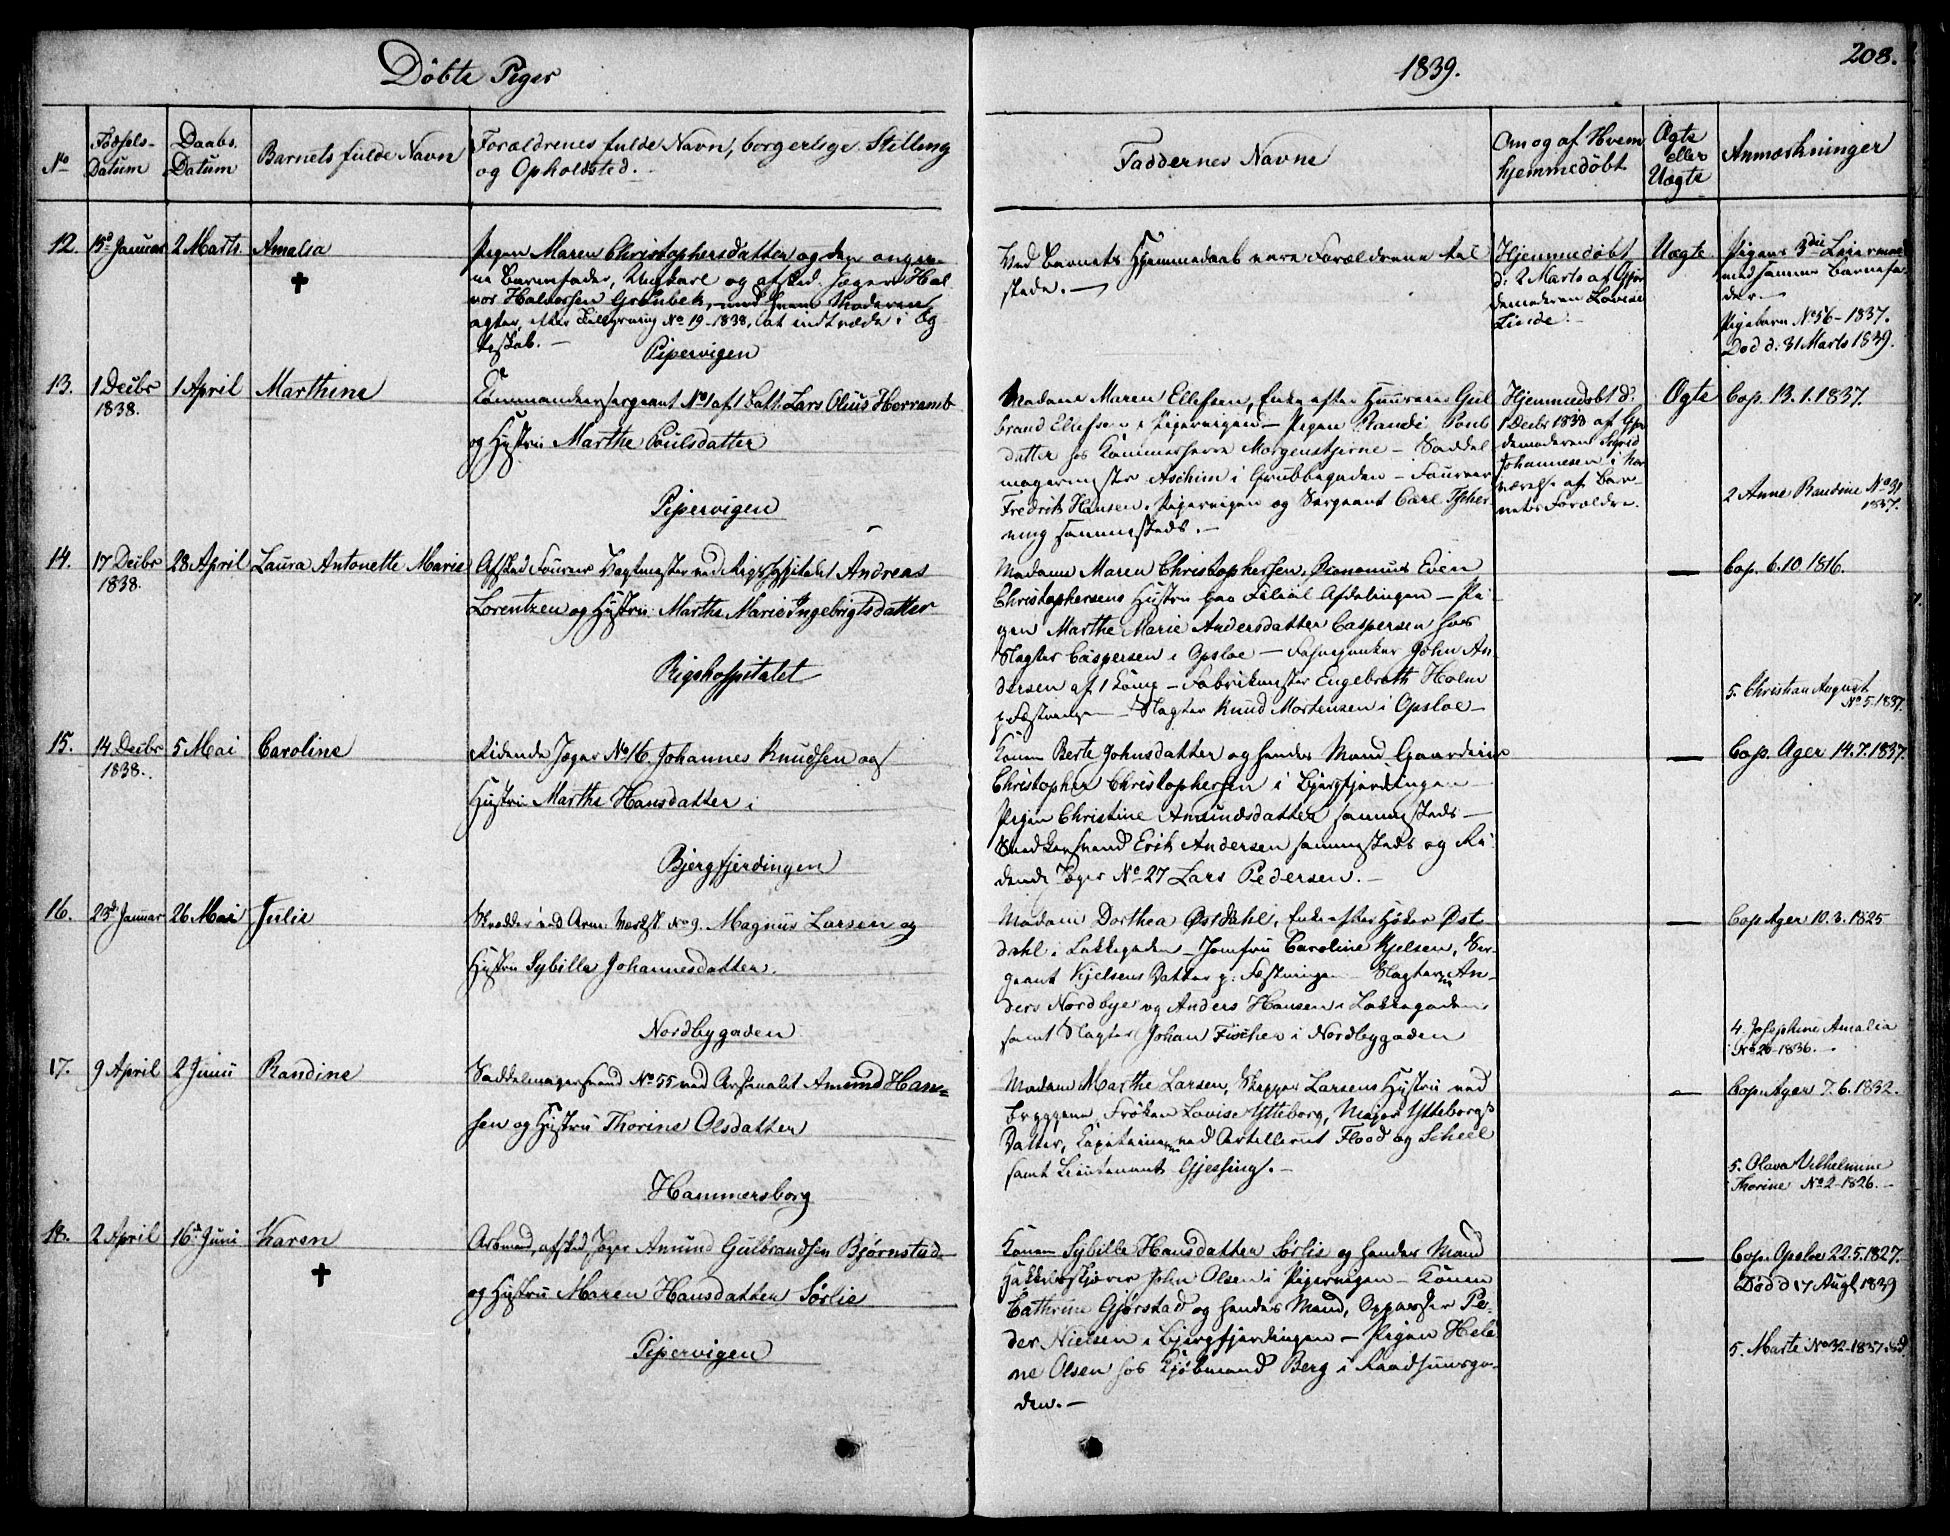 Døbte Piger
1839.
208.
No
Fødsels-
Datum
Daabs
Datum
Barnets fulde Navn
Forældrenes fulde Navn, borgerlige Stilling
og Opholdsted.
Faddernes Navne
Om og af Hvem
hjemmedøbt
Ægte
eller
Uægte
Anmærkninger
12.
15de Januar
2 Marts.
Amalia
Pigen Maren Christophersdatter og den angiv-
ne Barnefader, Ungkarl og afsked. Jæger Hal
vor Halvorsen Grønbek, med hvem Moderen
agter, efter Tillysning No 19-1838, at indtræde i Æg
teskab. —
Pipervigen
Ved Barnets Hjemmedaab vare Forældrene til
stede. —
Hjemmedøbt
d: 2 Marts af Gjor
demoderen Lovise
Linde.
Uægte
Pigens 3die Leiermaal
med samme Barnefa-
der. —
Pigebarn No 56-1837.
Død d: 31 Marts 1839.
13.
1 Decbr
1838.
1 April
Marthine
Commandeersergeant No 1 af 1 Batt. Lars Olius Horramb
og Hustru Marthe Poulsdatter
Pipervigen
Madame Maren Ellefsen, Enke efter Fourer Gul
brand Ellefsen i Pipervigen — Pigen Randi Pouls
datter hos Kammerherre Morgenstjerne — Saddel
magermester Aschim i Grubbegaden — Fourer
Fredrik Hansen, Pipervigen og Sergeant Carl Tscher
ning sammesteds. —
Hjemmedøbt d:
1 Decbr 1838 af Gjor
demoderen Sigrid
Johannesen i Nær
værelse af Bar-
nets Forældre.
Ægte
Cop. 13.1.1837.
2 Anne Randine No 31
1837.
14.
17 Decbr
1838.
28 April
Laura Antonette Marie
Afsked Fourer Vagtmester ved Rigshospitalet Andreas
Lorentzen og Hustru Marthe Marie Ingebrigtsdatter
Rigshospitalet
Madame Maren Christophersen, Økonomus Even
Christophersens Hustru paa Filial Afdelingen — Pi-
gen Marthe Marie Andersdatter Caspersen hos
Slagter Caspersen i Opsloe — Fahnejunker John An
dersen af 1 Comp — Fabrikmester Engebreth Holm
p. Fæstningen — Slagter Knud Mortensen i Opsloe —
—
Cop. 6.10 1816.
5. Christian August
No 5. 1837.
15.
14 Decbr
1838.
5 Mai
Caroline
Ridende Jæger No 16. Johannes Knudsen og
Hustru Marthe Hansdatter i
Bjergfjerdingen
Konen Berte Johnsdatter og hendes Mand Gaardeier
Christopher Christophersen i Bjergfjerdingen —
Pigen Christine Amundsdatter sammesteds —
Snedkersvend Erik Andersen sammesteds og Ri-
dende Jæger No 27 Lars Pedersen. —
—
Cop. Ager 14.7.1837.
16.
23de Januar
26 Mai
Julie
Skrædder ved Arm. Værkst. No 9. Magnus Larsen og
Hustru Sybille Johannesdatter.
Nordbygaden
Madam Dorthea Østdahl, Enke efter Høker Øst
dahl i Lakkegaden — Jomfru Caroline Kjelsen, Ser
geant Kjelsens Datter p. Festningen — Slagterne An-
ders Nordbye og Anders Hansen i Lakkegaden
samt Slagter Johan Fischer i Nordbygaden
—
Cop. Ager 10.3.1825
4. Josephine Amalia
No 26-1836. —
17.
9 April
2 Junii
Randine
Saddelmagersvend No 55 ved Arsenalet Amund Han=
sen og Hustru Thorine Olsdatter
Hammersborg
Madam Marthe Larsen, Skipper Larsens Hustru ved
Bryggene, Frøken Lovise Ytteborg, Major Ytteborgs
Datter, Capitainerne ved Artilleriet Flood og Scheel
samt Lieutenant Gjessing. —
—
Cop. Ager 7.6.1832.
5. Olava Vilhelmine
Thorine No 2-1826. —
18.
2 April
16de Juni
Karen
Arbmand, afsked. Jæger Amund Gulbrandsen Bjørnstad
og Hustru Maren Hansdatter Sørlie
Pipervigen
Konen Sybille Hansdatter Sørlie og hendes Mand
Hakkelseskjærer John Olsen i Pipervigen — Konen
Cathrine Gjørstad og hendes Mand, Oppasser Pe-
der Nielsen i Bjergfjerdingen — Pigen Hele
ne Olsen hos Kjøbmand Berg i Raadhuusga-
den. —
—
Cop. Opsloe 22.5.1827.
Død d 17 Augt 1839
5. Marte No 32-1837.